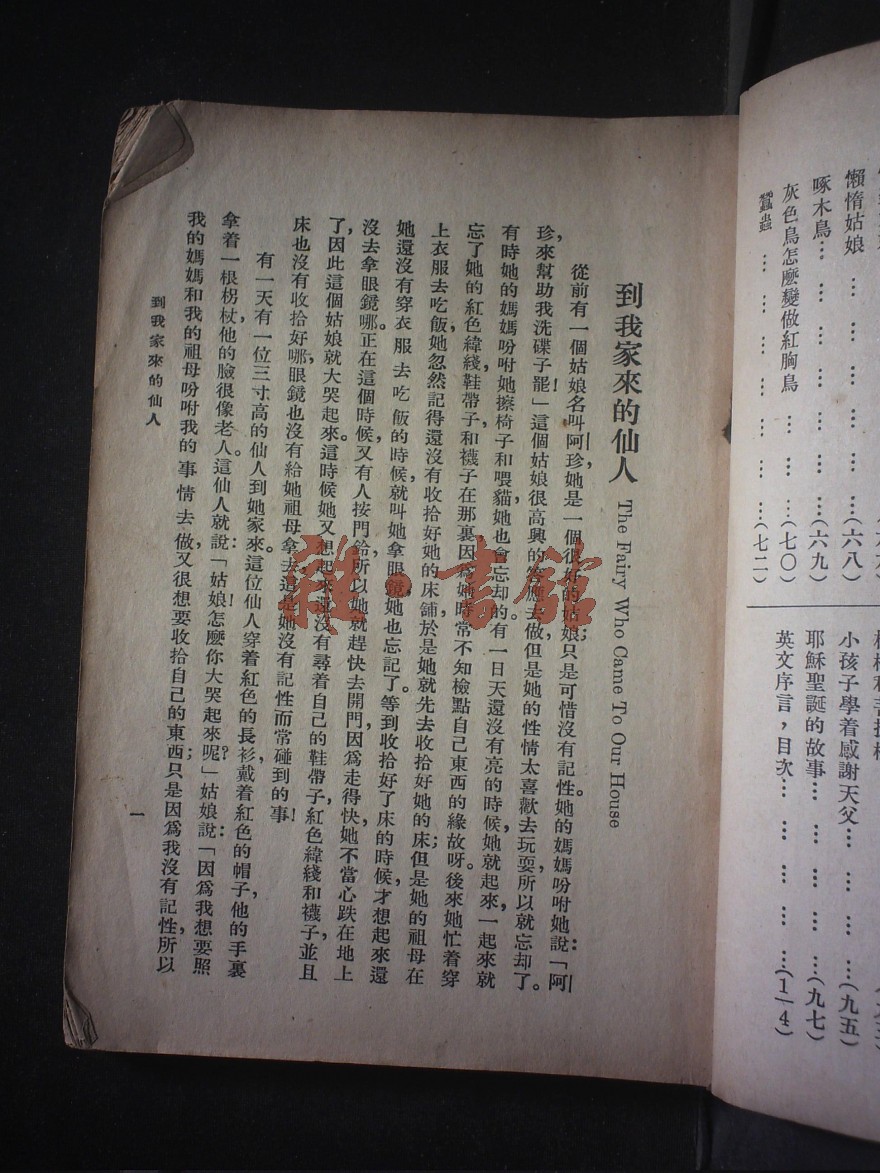 懶惰姑娘 … … … … … …(六八)
啄木鳥… … … … … … …(六九)
灰色鳥怎麽變做紅胸鳥 … … …(七〇)
蠶蟲 … … … … … … …(七二)
小孩子學着感謝天父… … … …(九五)
耶穌聖誕的故事… … … … …(九七)
英文序言,目次… … … … …(1—4)
到我家來的仙人 The Fairy Who Came To Our House
從前有一個姑娘名叫阿珍,她是一個很好的姑娘;只是可惜沒有記性。她的媽媽吩咐她說:「阿
珍,來幫助我洗碟子罷!」這個姑娘很高興的答應去做,但是她的性情太喜歡去玩耍,所以就忘却了。
有時她的媽媽吩咐她擦椅子和喂貓,她也會忘却的。有一日天還沒有亮的時候,她就起來,一起來就
忘了她的紅色緯綫,鞋帶子,和襪子在那裏,因爲她時常不知檢點自己東西的緣故呀。後來她忙着穿
上衣服去吃飯,她忽然記得還沒有收拾好她的床鋪,於是她就先去收拾好她的床;但是她的祖母在
她還沒有穿衣服去吃飯的時候,就叫她拿眼鏡,她也忘記了。等到收拾好了床的時候,才想起來還
沒去拿眼鏡哪。正在這個時候,又有人按門鈴,所以她就趕快去開門,因爲走得快,她不當心跌在地上
了,因此這個姑娘就大哭起來。這時候她又想起來還沒有尋着自己的鞋帶子,紅色緯綫和襪子,並且
床也沒有收拾好哪,眼鏡也沒有給她祖母拿去,這是她沒有記性而常碰到的事!
有一天有一位三寸高的仙人到她家來。這位仙人穿着紅色的長衫,戴着紅色的帽子,他的手裏
拿着一根柺杖,他的臉很像老人。這仙人就說:「姑娘!怎麽你大哭起來呢?」姑娘說:「因爲我想要照
我的媽媽和我的祖母吩咐我的事情去做,又很想要收拾自己的東西;只是因爲我沒有記性,所以
到我家來的仙人
一
雜·書館